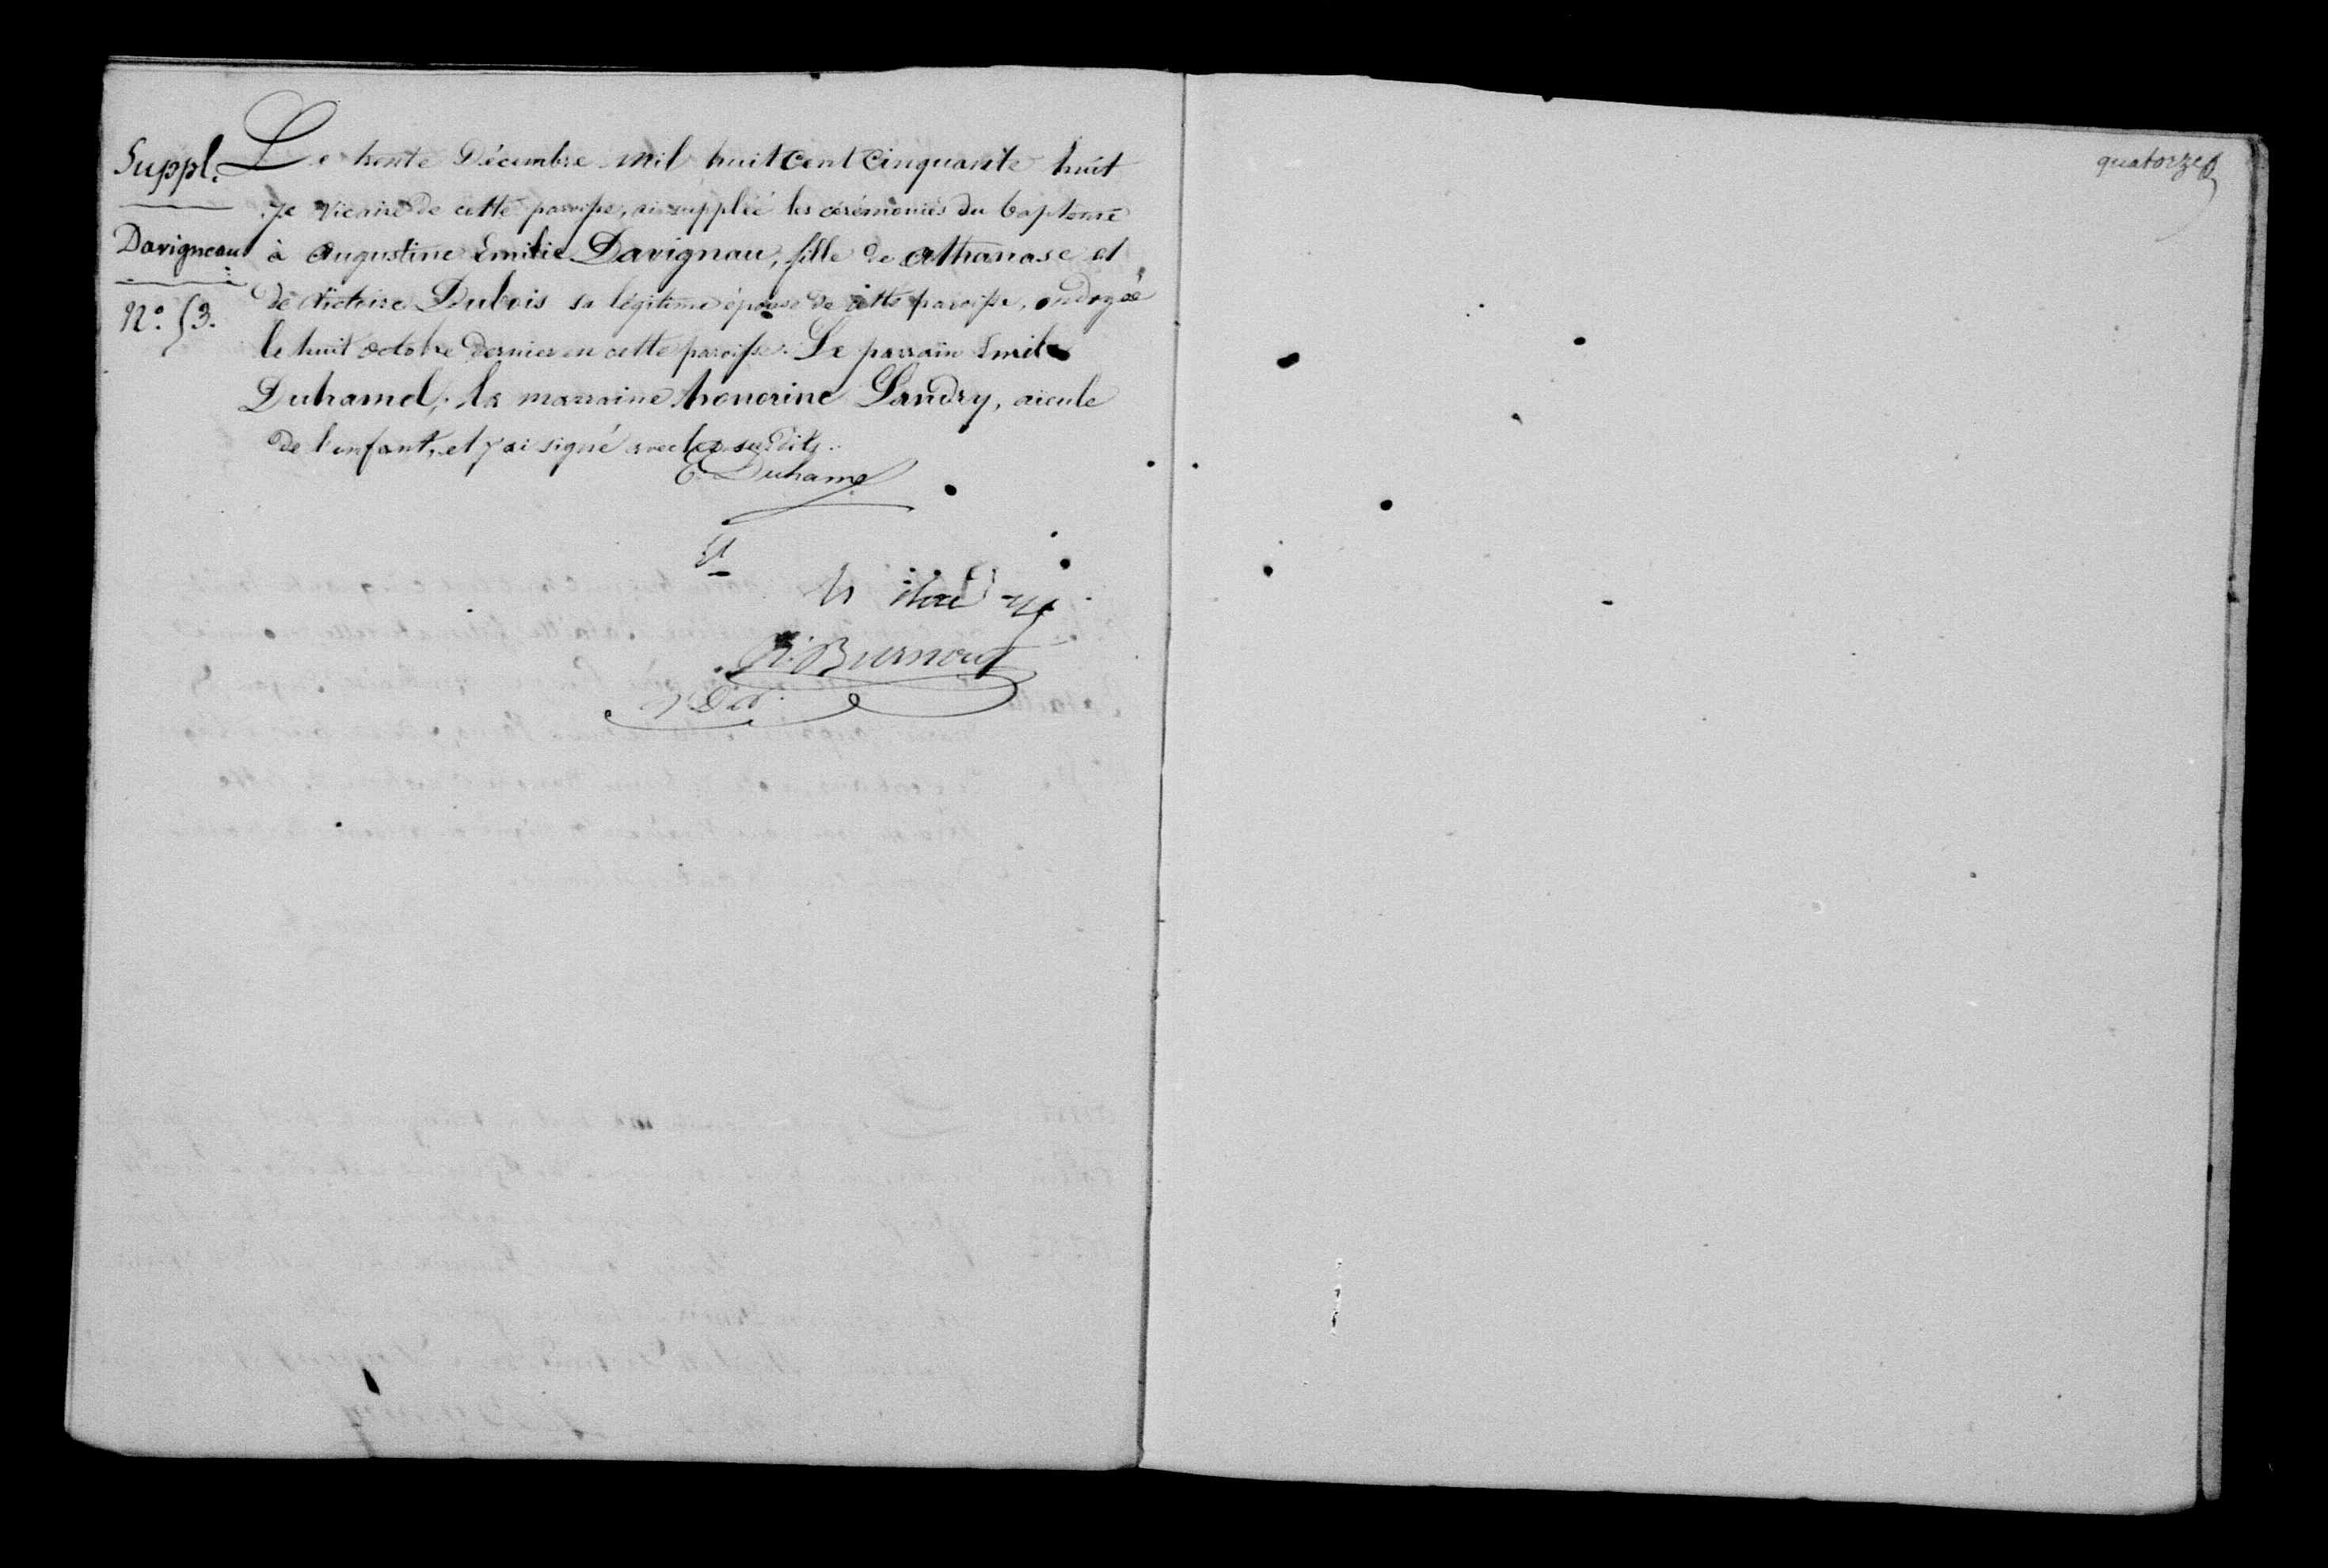 Suppl.
Davigneau
N°. 53.
Le trente Décembre mil huit Cent Cinquante huit
Je Vicaire de cette paroisse, ai suppléé les cérémonies du baptême
à Augustine Emilie Davignau, fille de Athanase et
de Victoire Dubois sa légitime épouse de cette paroisse, ondoyée
le huit octobre dernier en cette paroisse. Le parrain Emile
Duhamel, la marraine honorine Landry, aïeule
de l'enfant, et j'ai signé avec les susdits.
E Duhamel
h landry
Burnouf
quatorze